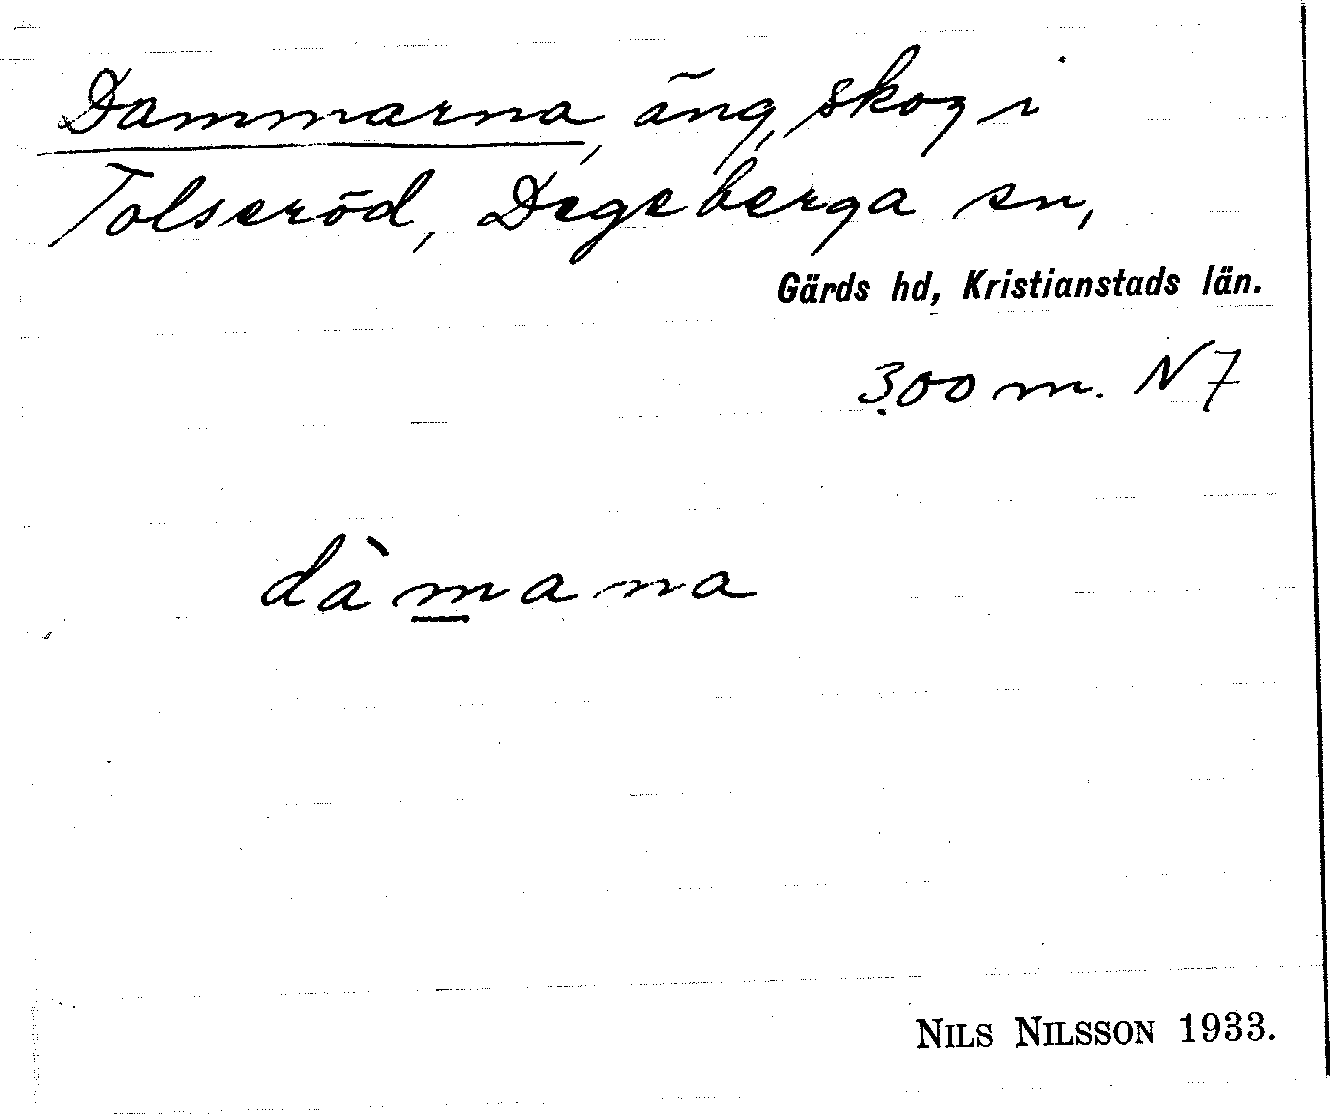 Dammarna, äng, skog i
Tolseröd, Degeberga sn,
Gärds hd, Kristianstads län.
300 m. N7
dàm̲ana
NILS NILSSON 1933.